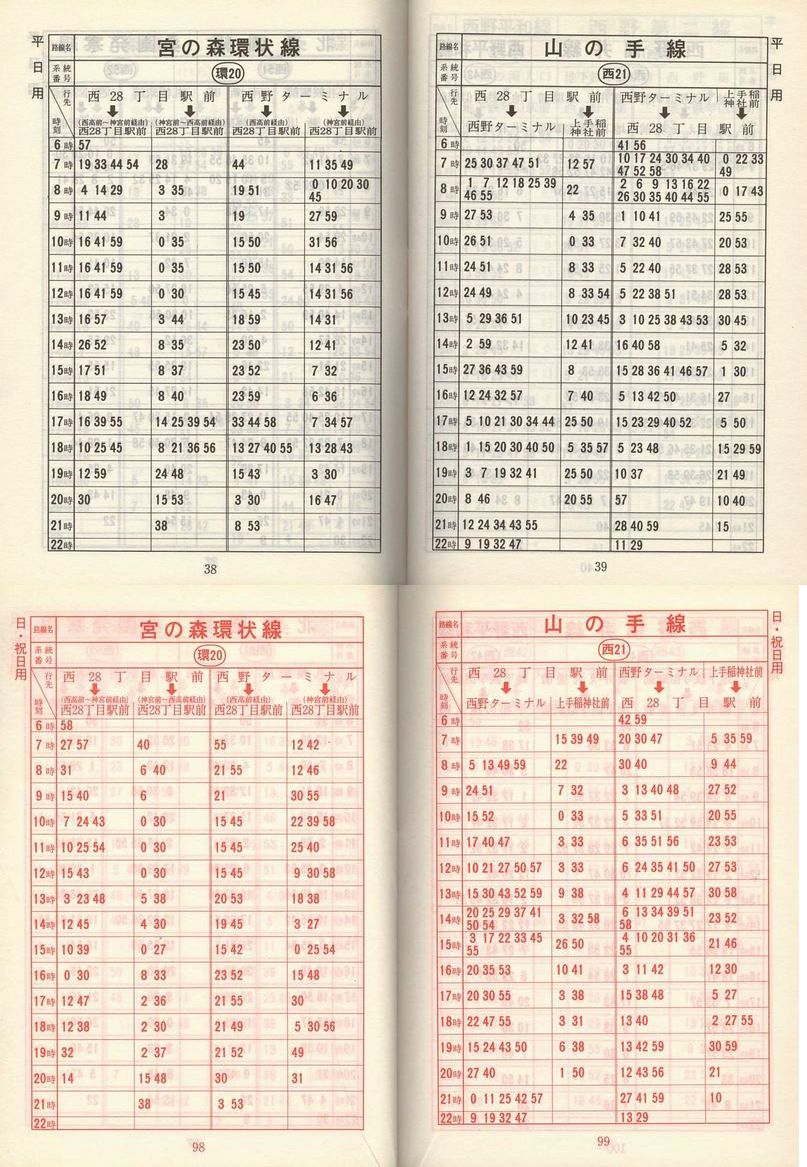 平日用
路線名 宮の森環状線
系統番号 環20
行先 時刻
西28丁目駅前 西野ターミナル
(西高前~神宮前経由) (神宮前~西高前経由) (西高前経由) (神宮前経由)
西28丁目駅前 西28丁目駅前 西28丁目駅前 西28丁目駅前
6時 57
7時 19 33 44 54 28 44 11 35 49
8時 4 14 29 3 35 19 51 0 10 20 30 45
9時 11 44 3 19 27 59
10時 16 41 59 0 35 15 50 31 56
11時 16 41 59 0 35 15 50 14 31 56
12時 16 41 59 0 30 15 45 14 31 56
13時 16 57 3 44 18 59 14 31
14時 26 52 8 35 23 50 12 41
15時 17 51 8 37 23 52 7 32
16時 18 49 8 40 23 59 6 36
17時 16 39 55 14 25 39 54 33 44 58 7 34 57
18時 10 25 45 8 21 36 56 13 27 40 55 13 28 43
19時 12 59 24 48 15 43 3 30
20時 30 15 53 3 30 16 47
21時 38 8 53
22時
38
平日用
路線名 山の手線
系統番号 西21
行先 時刻
西28丁目駅前 西野ターミナル 上手稲神社前
西野ターミナル 上手稲神社前 西28丁目駅前
6時 41 56
7時 25 30 37 47 51 12 57 10 17 24 30 34 40 47 52 58 0 22 33 49
8時 1 7 12 18 25 39 46 55 22 2 6 9 13 16 22 26 30 35 40 44 55 0 17 43
9時 27 53 4 35 1 10 41 25 55
10時 26 51 0 33 7 32 40 20 53
11時 24 51 8 33 5 22 40 28 53
12時 24 49 8 33 54 5 22 38 51 28 53
13時 5 29 36 51 10 23 45 3 10 25 38 43 53 30 45
14時 2 59 12 41 16 40 58 5 32
15時 27 36 43 59 8 15 28 36 41 46 57 1 30
16時 12 24 32 57 7 40 5 13 42 50 27
17時 5 10 21 30 34 44 25 50 15 23 29 40 52 5 50
18時 1 15 20 30 40 50 5 35 57 5 23 48 15 29 59
19時 3 7 19 32 41 25 50 10 37 21 49
20時 8 46 20 55 57 10 40
21時 12 24 34 43 55 28 40 59 15
22時 9 19 32 47 11 29
39
日・祝日用
路線名 宮の森環状線
系統番号 環20
行先 時刻
西28丁目駅前 西野ターミナル
(西高前~神宮前経由) (神宮前~西高前経由) (西高前経由) (神宮前経由)
西28丁目駅前 西28丁目駅前 西28丁目駅前 西28丁目駅前
6時 58
7時 27 57 40 55 12 42
8時 31 6 40 21 55 12 46
9時 15 40 6 21 30 55
10時 7 24 43 0 30 15 45 22 39 58
11時 10 25 54 0 30 15 45 25 40
12時 15 43 0 30 15 45 9 30 58
13時 3 23 48 5 38 20 53 18 38
14時 12 45 4 30 19 45 3 27
15時 10 39 0 27 15 42 0 25 54
16時 0 30 8 33 23 52 15 48
17時 12 47 2 36 21 55 30
18時 12 38 2 30 21 49 5 30 56
19時 32 2 37 21 52 49
20時 14 15 48 30 31
21時 38 3 53
22時
98
日・祝日用
路線名 山の手線
系統番号 西21
行先 時刻
西28丁目駅前 西野ターミナル 上手稲神社前
西野ターミナル 上手稲神社前 西28丁目駅前
6時 42 59
7時 15 39 49 20 30 47 5 35 59
8時 5 13 49 59 22 30 40 9 44
9時 24 51 7 32 3 13 40 48 27 52
10時 15 52 0 33 5 33 51 20 55
11時 17 40 47 3 33 6 35 51 56 23 53
12時 10 21 27 50 57 3 33 6 24 35 41 50 27 53
13時 15 30 43 52 59 9 38 4 11 29 44 57 30 58
14時 20 25 29 37 41 50 54 3 32 58 6 13 34 39 51 58 23 52
15時 3 17 22 33 45 55 26 50 4 10 20 31 36 55 21 46
16時 20 35 53 10 41 3 11 42 12 30
17時 20 30 55 3 38 15 38 48 5 27
18時 22 47 55 3 31 13 40 2 27 55
19時 15 24 43 50 6 38 13 42 59 30 59
20時 27 40 1 50 12 43 56 21
21時 0 11 25 42 57 27 41 59 10
22時 9 19 32 47 13 29
99